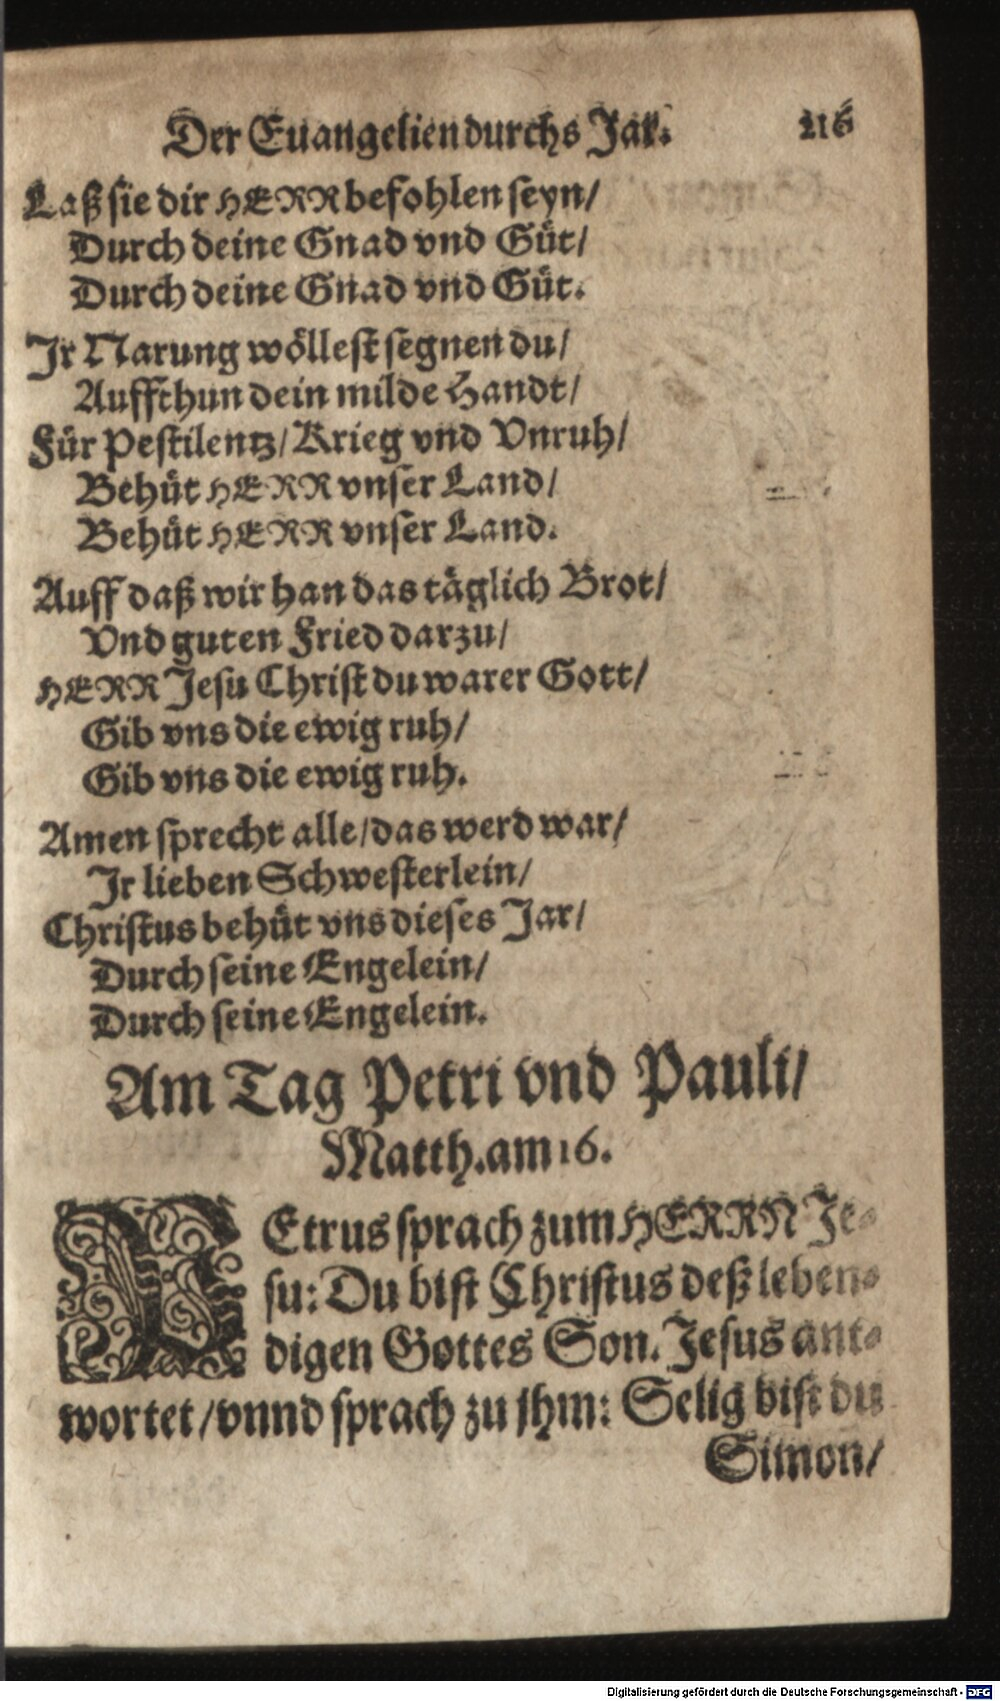 Der Euangelien durchs Jar. 216
Laß sie dir HERR befohlen seyn/
Durch deine Gnad vnd Güt/
Durch deine Gnad vnd Güt.
Jr Narung wöllest segnen du/
Auffthun dein milde Handt/
Für Pestilentz/ Krieg vnd Vnruh/
Behüt HERR vnser Land/
Behüt HERR vnser Land.
Auff daß wir han das täglich Brot/
Vnd guten Fried darzu/
HERR Jesu Christ du warer Gott/
Gib vns die ewig ruh/
Gib vns die ewig ruh.
Amen sprecht alle/ das werd war/
Jr lieben Schwesterlein/
Christus behüt vns dieses Jar/
Durch seine Engelein/
Durch seine Engelein.
Am Tag Petri vnd Pauli/
Matth. am 16.
PEtrus sprach zum HERRN Je-
su: Du bist Christus deß leben-
digen Gottes Son. Jesus ant-
wortet/ vnnd sprach zu jhm: Selig bist du
Simon/
Digitalisierung gefördert durch die Deutsche Forschungsgemeinschaft - DFG